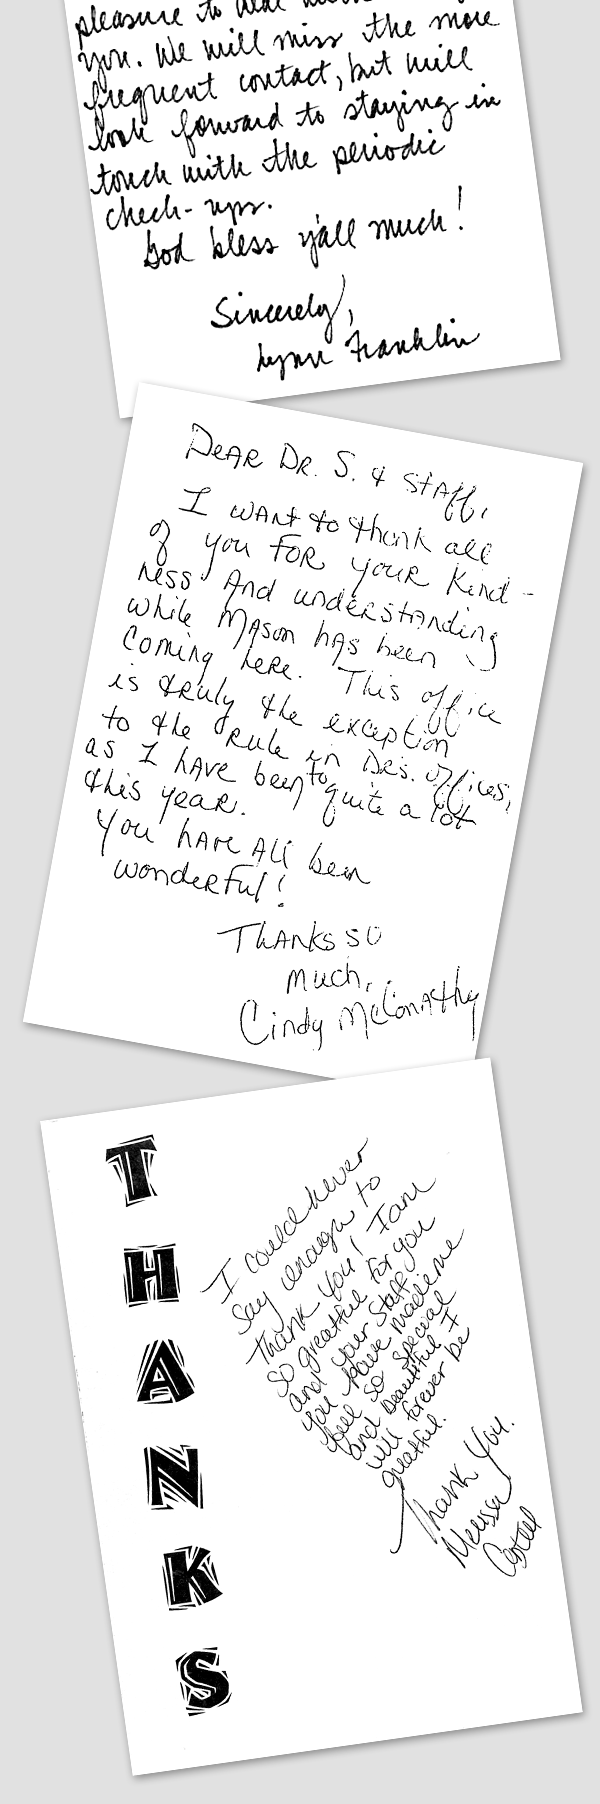 pleasure to
you. We will miss the more
frequent contact, but will
look forward to staying in
touch with the periodic
check-ups.
God bless y'all much!
Sincerely,
Lynn Franklin
DEAR DR. S. & Staff,
I want to thank all
of you FOR YOUR Kind-
ness And understanding
while Mason has been
coming here. This office
is truly the exception
to the Rule in Drs. offices,
as I have been to quite a lot
this year.
You have All been
wonderful!
Thanks so
much,
Cindy McConathy
THANKS
I could never
say enough to
thank you! I am
so greatful for you
and your staff,
you have made me
feel so special
and beautiful I
will forever be
greatful.
Thank You.
Melissa